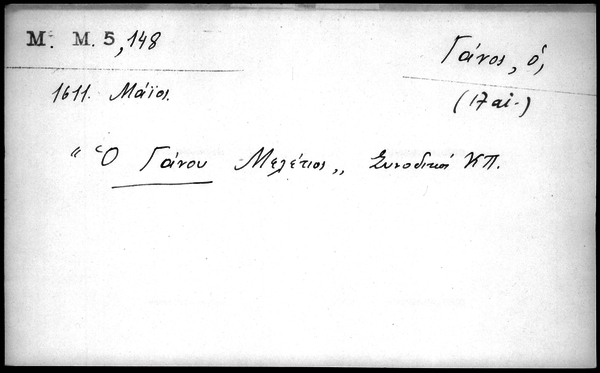 Μ. Μ. 5,148
Γάνος, ὁ,
1611. Μάϊος.
(17 αἰ.)
"Ὁ Γάνου Μελέτιος„ Συνοδικοί ΚΠ.